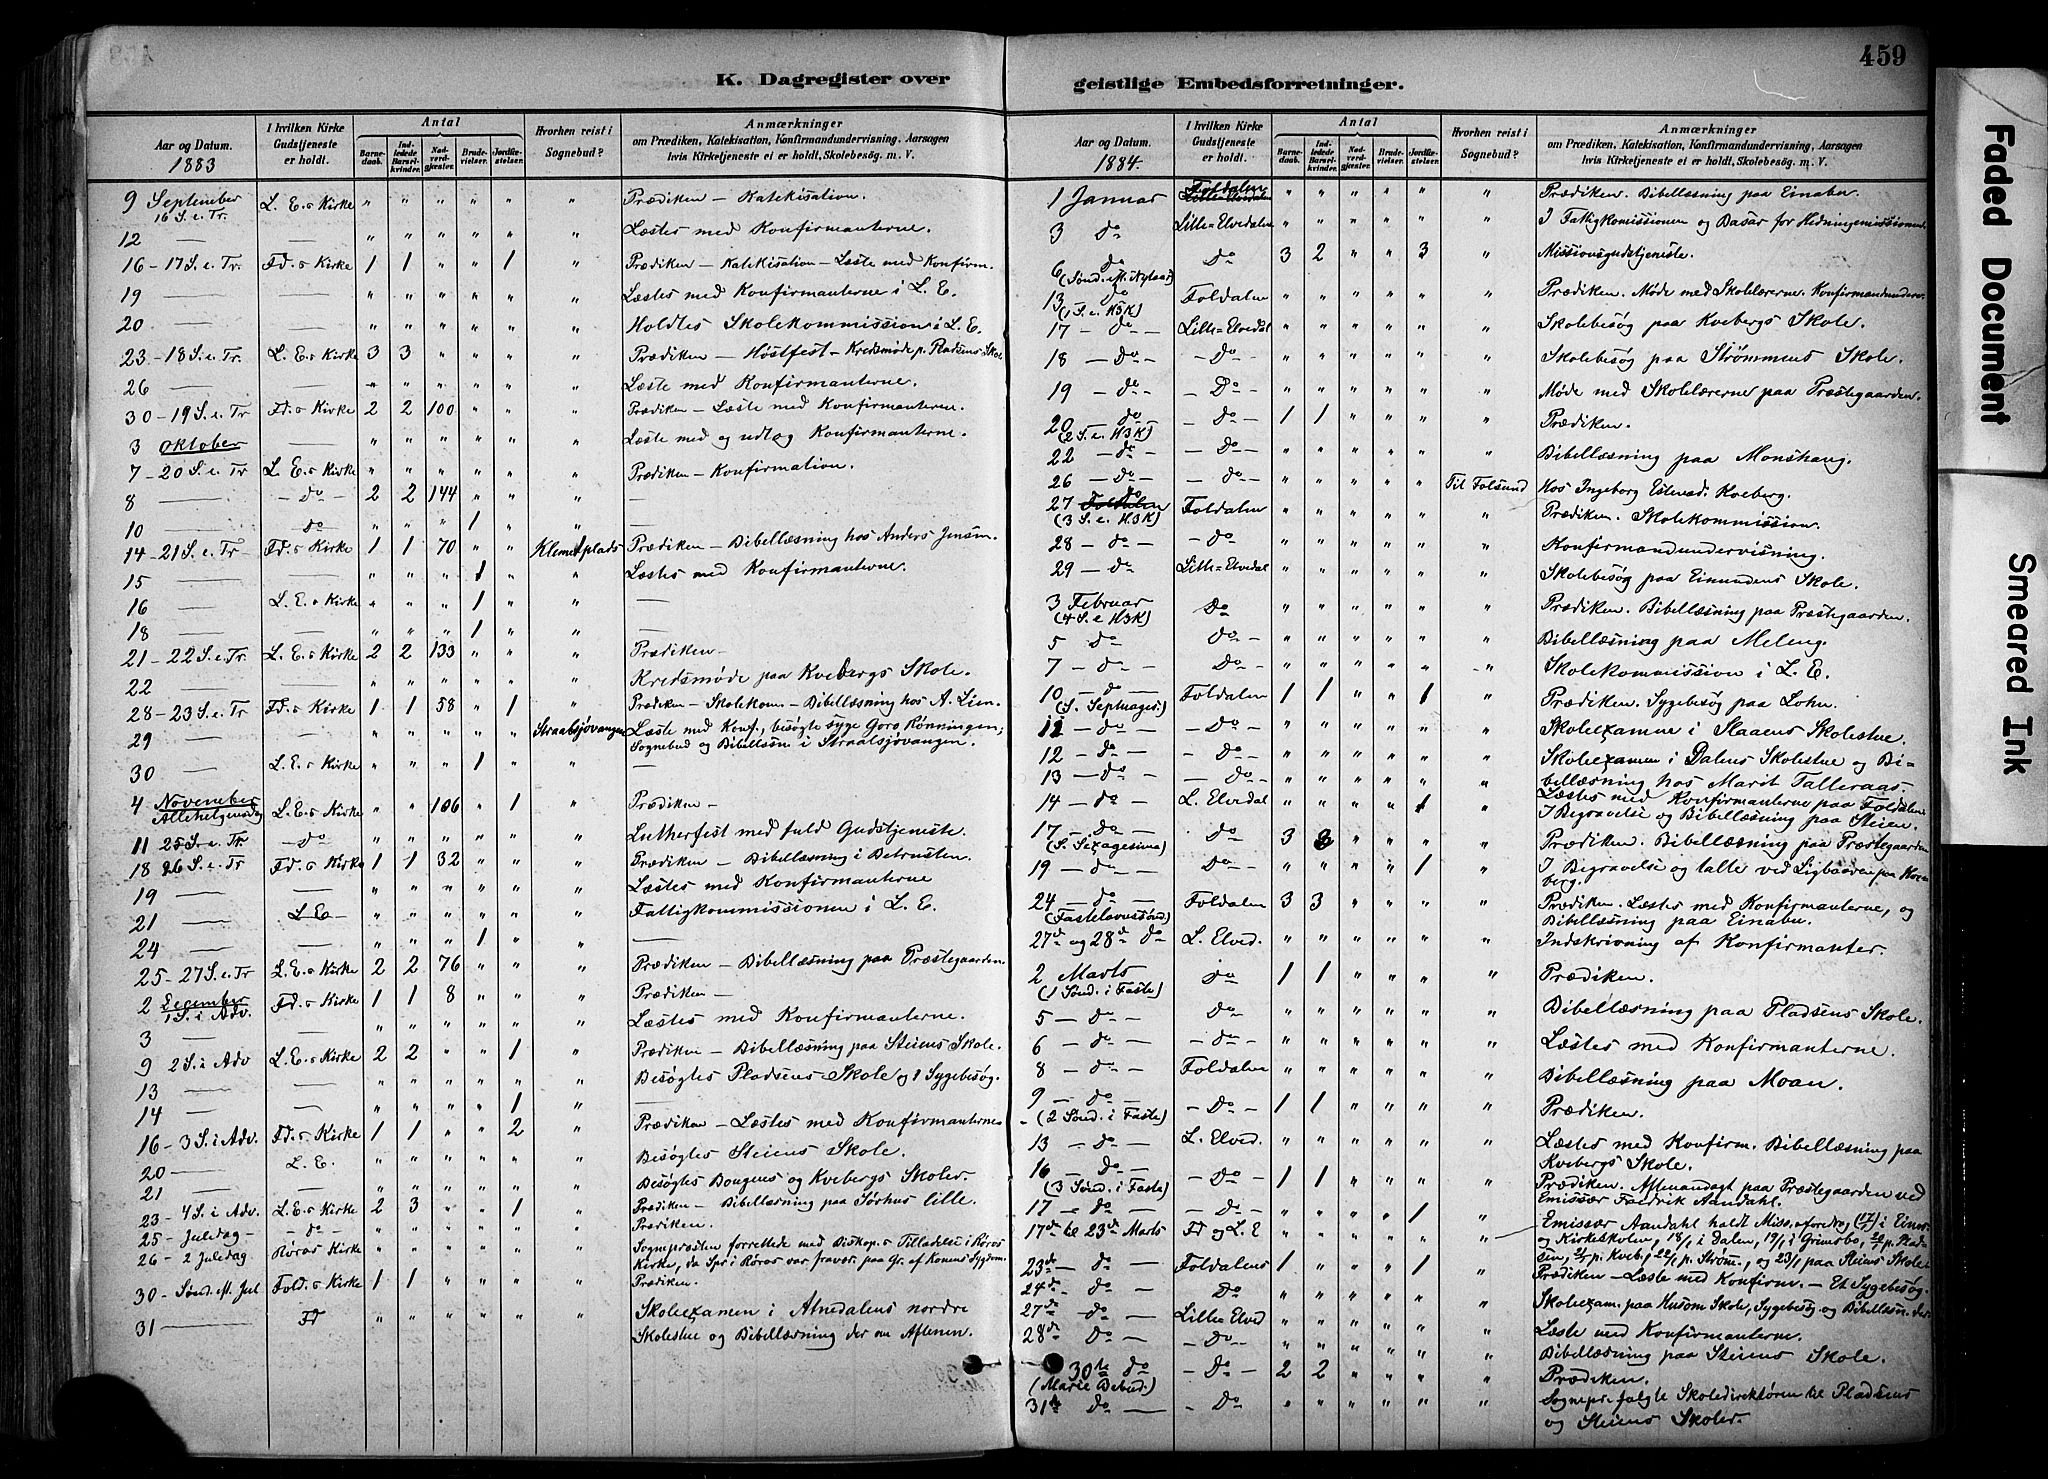 459
K. Dagregister over
Aar og Datum.
1883
I hvilken Kirke Gudstjeneste er holdt.
Antal
Barnedaab.
Indledede Barselkvinder.
Nadverdgjester.
Brudevielser.
Jordfæstelser.
Hvorhen reist i Sognebud?
Anmærkninger
om Prædiken, Katekisation, Konfirmandundervisning, Aarsagen
hvis Kirketjeneste ei er holdt, Skolebesøg. m. V.
9 September 16 S. e. Tr. L. E.s Kirke " " " " " " Prædiken – Katekisation.
12 — — " " " " " " Læstes med Konfirmanterne.
16 – 17 S. e. Tr. Fd.s Kirke 1 1 " " 1 " Prædiken – Katekisation – Læste med Konfirm.
19 — — " " " " " " Læstes med Konfirmanterne i L. E.
20 — — " " " " " " Holdtes Skolekommission i L. E.
23 – 18 S. e. Tr. L. E.s Kirke 3 3 " " " " Prædiken – Høstfest – Kredsmøde p. Pladsens Skole
26 — — " " " " " " Læste med Konfirmanterne.
30 – 19 S. e. Tr Fd.s Kirke 2 2 100 " " " Prædiken – Læste med Konfirmanterne.
3 Oktober — " " " " " " Læste med og udtog Konfirmanterne.
7 – 20 S. e. Tr L. E.s Kirke " " " " " " Prædiken – Konfirmation.
8 — – do – 2 2 144 " " " —
10 — do " " " 1 " " —
14 – 21 S. e. Tr Fd.s Kirke 1 1 70 " " Klemetplads Prædiken – Bibellæsning hos Anders Jensen.
15 — — " " " 1 " " Læstes med Konfirmanterne.
16 — L. E.s Kirke " " " 1 " " —
18 — — " " " 1 " "
21 – 22 S. e. Tr. L. E.s Kirke 2 2 133 " " " Prædiken –
22 — — " " " " " " Kredsmøde paa Kvebergs Skole.
28 – 23 S. e. Tr Fd.s Kirke 1 1 58 " 1 " Prædiken – Skolekom. – Bibellæsning hos A. Lien.
29 — — " " " " " Straalsjøvangen Læste med Konf., besøgte syge Goro Rønningen;
Sognebud og Bibellæsn i Straalsjøvangen.
30 — L. E.s Kirke " " " 1 " " —
4 November Allehelgensdag L. E.s Kirke " " 106 " 1 " Prædiken –
11 25 S. e. Tr – do – " " " " " " Lutherfest med fuld Gudstjeneste.
18 26 S. e. Tr Fd.s Kirke 1 1 32 " " " Prædiken – Bibellæsning i Betrusten.
19 — — " " " " " " Læstes med Konfirmanterne
21 — L. E – " " " " " " Fattigkommissionen i L. E.
24 — — " " " 1 " " —
25 – 27 S. e. Tr L. E.s Kirke 2 2 76 " " " Prædiken – Bibellæsning paa Præstegaarden.
2 December 1 S. i Adv. Fd.s Kirke 1 1 8 " " " Prædiken –
3 — — " " " " " " Læstes med Konfirmanterne.
9 2 S. i Adv L. E.s Kirke 2 2 " " 1 " Prædiken – Bibellæsning paa Steiens Skole.
13 — — " " " " " " Besøgtes Pladsens Skole og 1 Sygebesøg.
14 — — " " " " 1 "
16 – 3 S. i Adv. Fd.s Kirke 1 1 " " 2 " Prædiken – Læstes med Konfirmanterne
20 — L. E. " " " " " " Besøgtes Steiens Skole.
21 — — " " " " " " Besøgtes Bougens og Kvebergs Skoler.
23 – 4 S. i Adv. L. E.s Kirke 2 3 " " 1 " Prædiken – Bibellæsning paa Sørhus lille.
25 – Juledag – – do – " " " " " " Prædiken.
26 – 2 Juledag Røros Kirke " " " " " " Sognepresten forrettede med Biskop.s Tilladelse i Røros
Kirke, da Spr i Røros var fravær. paa Gr. af Konens Sygdom.
30 – Sønd. eft. Jul Fold.s Kirke 1 1 " " " " Prædiken.
31 — Fd " " " " " " Skoleexamen i Atnedalens nordre
Skolestue og Bibellæsning der om Aftenen.
geistlige Embedsforretninger.
Aar og Datum.
1884.
I hvilken Kirke Gudstjeneste er holdt.
Antal
Barnedaab.
Indledede Barselkvinder.
Nadverdgjester.
Brudevielser.
Jordfæstelser.
Hvorhen reist i Sognebud?
Anmærkninger
om Prædiken, Katekisation, Konfirmandundervisning, Aarsagen
hvis Kirketjeneste ei er holdt, Skolebesøg. m. V.
1 Januar Foldalen Lille=Elvedalen " " " " " " Prædiken. Bibellæsning paa Einabu.
3 do Lille=Elvedalen " " " " " " I Fattigkomissionen og Basar for Hedningemissionen.
6 do (Sønd. e. Nytaar) Do 3 2 " " 3 " Missionsgudstjeneste.
13 do (1 S. e. H3K) Foldalen " " " " " " Prædiken. Møde med Skolelærerne. Konfirmandunderv.
17 – do – Lille=Elvedal " " " " " " Skolebesøg paa Kvebergs Skole.
18 – do – – Do – " " " " " " Skolebesøg paa Strømmens Skole.
19 – do – – Do – " " " " " " Møde med Skolelærerne paa Præstegaarden.
20 do (2 S. e. H3K) – Do – 1 1 " " " " Prædiken.
22 – do – – Do – " " " " " " Bibellæsning paa Monshaug.
26 – do – – do – " " " " " Til Folsund Hos Ingeborg Estensd. Kveberg.
27 Foldalen do (3 S. e. H3K) Foldalen " " " " " " Prædiken. Skolekommission.
28 – do – – do – " " " " " " Konfirmandundervisning.
29 – do Lille=Elvedal " " " " " " Skolebesøg paa Einundens Skole.
3 Februar (4 S. e H3K) Do " " " " " " Prædiken. Bibellæsning paa Præstegaarden.
5 do Do – " " " " " " Bibellæsning paa Meleng.
7 – do – Do " " " " " " Skolekommission i L. E.
10 – do – (S. Septuages.) Foldalen 1 1 " " 1 " Prædiken. Sygebesøg paa Lohn.
11 – do – – Do – " " " " " " Skoleexamen i Slaaens Skolestue.
12 – do – – do – " " " " " " Skoleexamen i Dalens Skolestue og Bi-
13 – do – – do – " " " " " " bellæsning hos Marit Talleraas.
Læstes med Konfirmanterne paa Foldalen.
14 – do – L. Elvedal " " " " 1 " I Begravelse og Bibellæsning paa Steien.
17 – do – (S. Sexagesima) do 3 3 " " " " Prædiken. Bibellæsning paa Præstegaarden
19 – do – Do – " " " " 1 " I Begravelse og talte ved Ligbaaren paa Kve-
berg.
24 – do – (Fastelavnssønd) Foldalen 3 3 " " " " Prædiken. Læstes med Konfirmanterne, og
Bibellæsning paa Einabu.
27de og 28de do L. Elved. " " " " " " Indskrivning af Konfirmanter.
2 Marts (1 Sønd. i Faste) do 1 1 " " " " Prædiken.
5 – do – Do – " " " " " " Bibellæsning paa Pladsens Skole.
6 – do – – do – " " " " " " Læstes med Konfirmanterne.
8 – do – Foldalen " " " " " " Bibellæsning paa Moan.
9 – do – (2 Sønd. i Faste) – Do – 1 1 " " " " Prædiken.
13 – do – L. Elved. " " " " " " Læstes med Konfirm. Bibellæsning paa
Kvebergs Skole.
16 – do – (3 Sønd. i Faste) – Do – 1 1 " " " " Prædiken. Aftenandagt paa Præstegaarden ved
Emissær Fredrik Aandahl.
17 – do – – do – " " " " 1 "
17de til 23de Marts Fd og L. E " " " " " " Emissær Aandahl holdt Miss. oforedrag (17/1) i Einab.
og Kirkeskolen, 18/1 i Dalen, 19/1 i Grimsbo, 20/1 p. Plad-
sen, 21/1 p. Kveb. 22/1 p. Strøm., og 23/1 paa Steins Skole
23de – do – Foldalens 1 " " " 1 " Prædiken – Læste med Konfirm. – Et Sygebesøg.
24de – do – Do " " " " " " Skoleexam. paa Husom Skole, Sygebesøg og Bibellæsn. der
27de – do – Lille=Elved " " " " " " Læste med Konfirmanterne.
28de – do – – Do – " " " " " " Bibellæsning paa Steiens Skole.
30te do (Marie Bebud.) – Do – 2 2 " " " " Prædiken.
31te do – – Do " " " " " " Sognepr. fulgte Skoledirektøren til Pladsens
og Steiens Skoler.
Faded Document
Smeared Ink